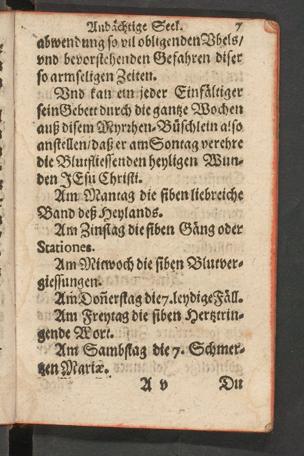 Andächtige Seel. 7
abwendung so vil obligenden Vbels/
vnd bevorstehenden Gefahren diser
so armseligen Zeiten.
Vnd kan ein jeder Einfältiger
sein Gebett durch die gantze Wochen
auß disem Myrrhen-Büschlein also
anstellen/daß er am Sontag verehre
die Blutfliessenden heyligen Wun-
den JEsu Christi.
Am Mantag die siben liebreiche
Band deß Heylands.
Am Zinstag die siben Gäng oder
Stationes.
Am Mitwoch die siben Blutver-
giessungen.
Am Doñerstag die 7. leydige Fäll.
Am Freytag die siben Hertztrin-
gende Wort.
Am Sambstag die 7. Schmer-
tzen Mariæ.
A v Du